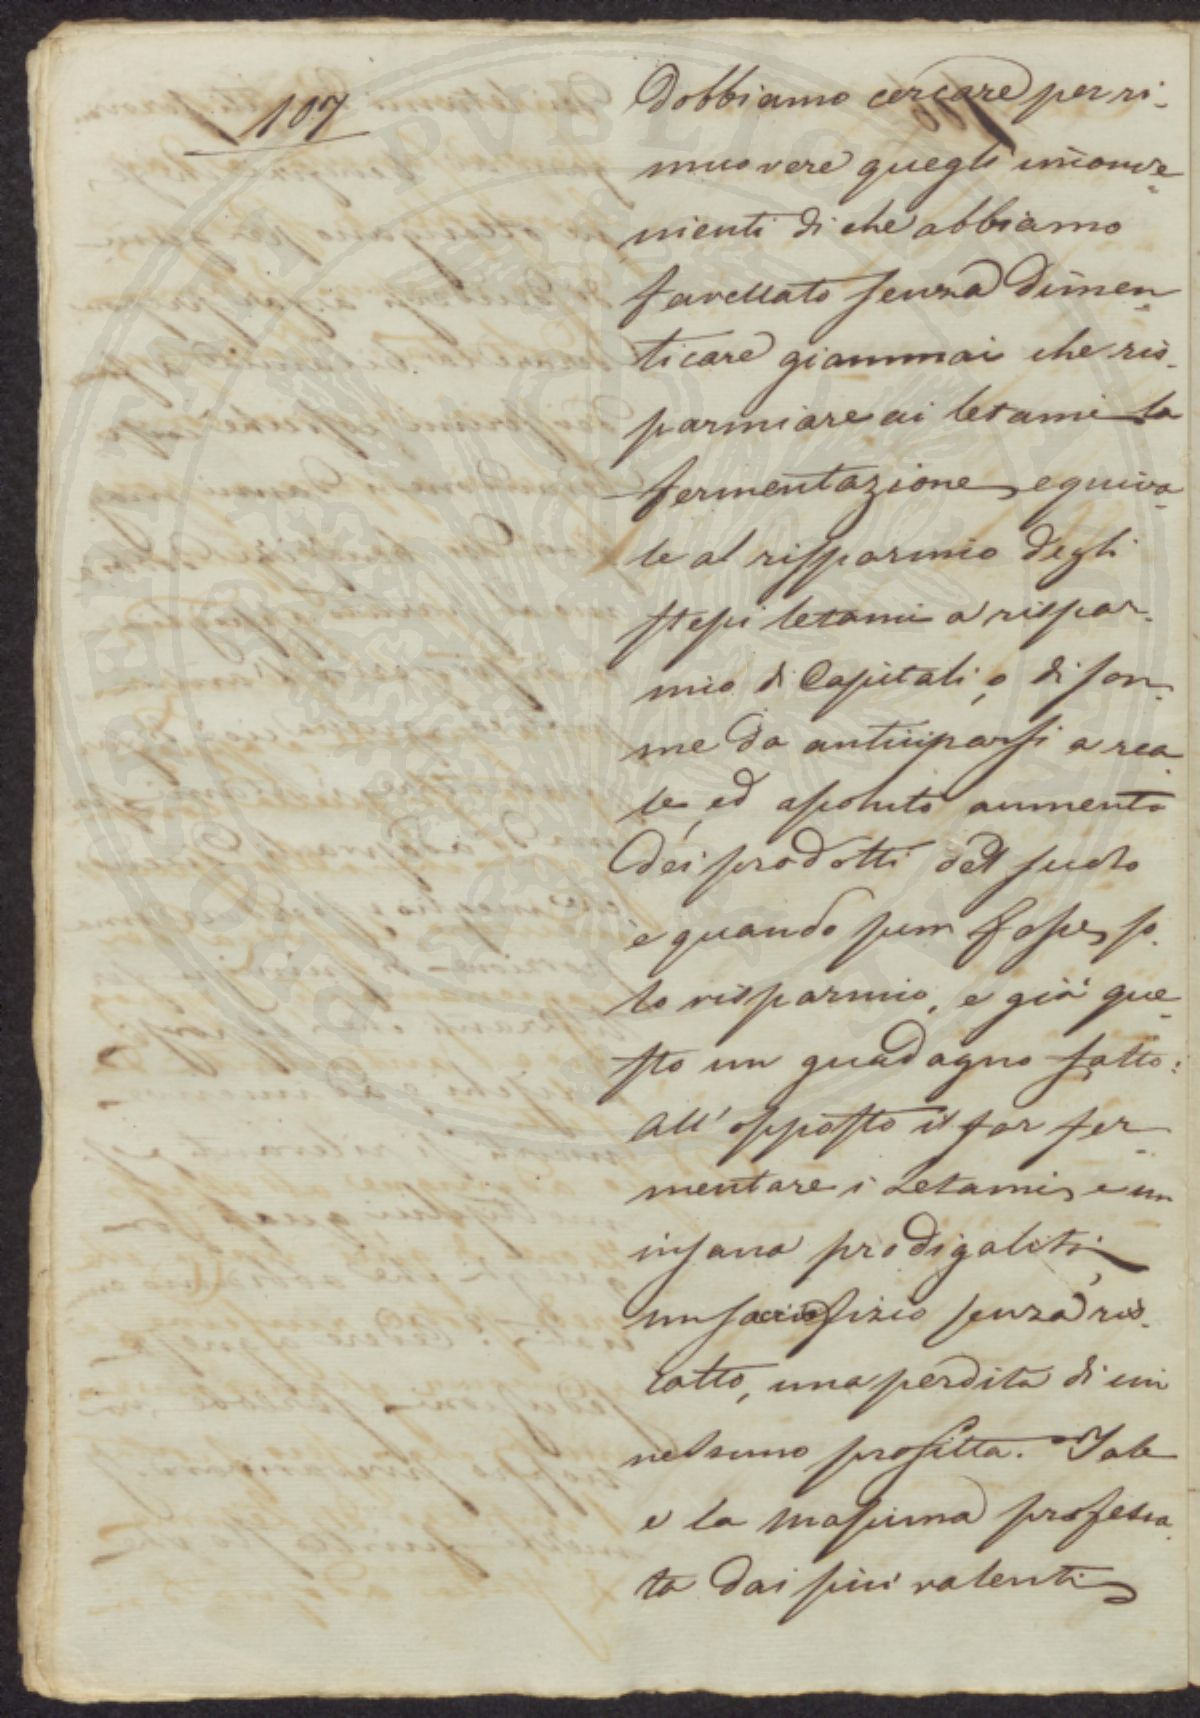 107
Dobbiamo cercare per ri-
muovere quegli inconve-
nienti di che abbiamo
favellato senza dimen-
ticare giammai che ris-
parmiare ai letami la
fermentazione, equiva-
le al risparmio degli
stessi letami a rispar-
mio di Capitali, o di som-
me da anticiparsi a rea-
le, ed assoluto aumento
dei prodotti del suolo
e quando pur fosse, so-
lo risparmio, e già que-
sto un guadagno fatto:
All'opposto il far fer-
mentare i Letami, e un
insana prodigalità,
un sacrifizio senza ris-
catto, una perdita di cui
nelsuno profitta. Tale
e la massima professa-
ta dai più valenti